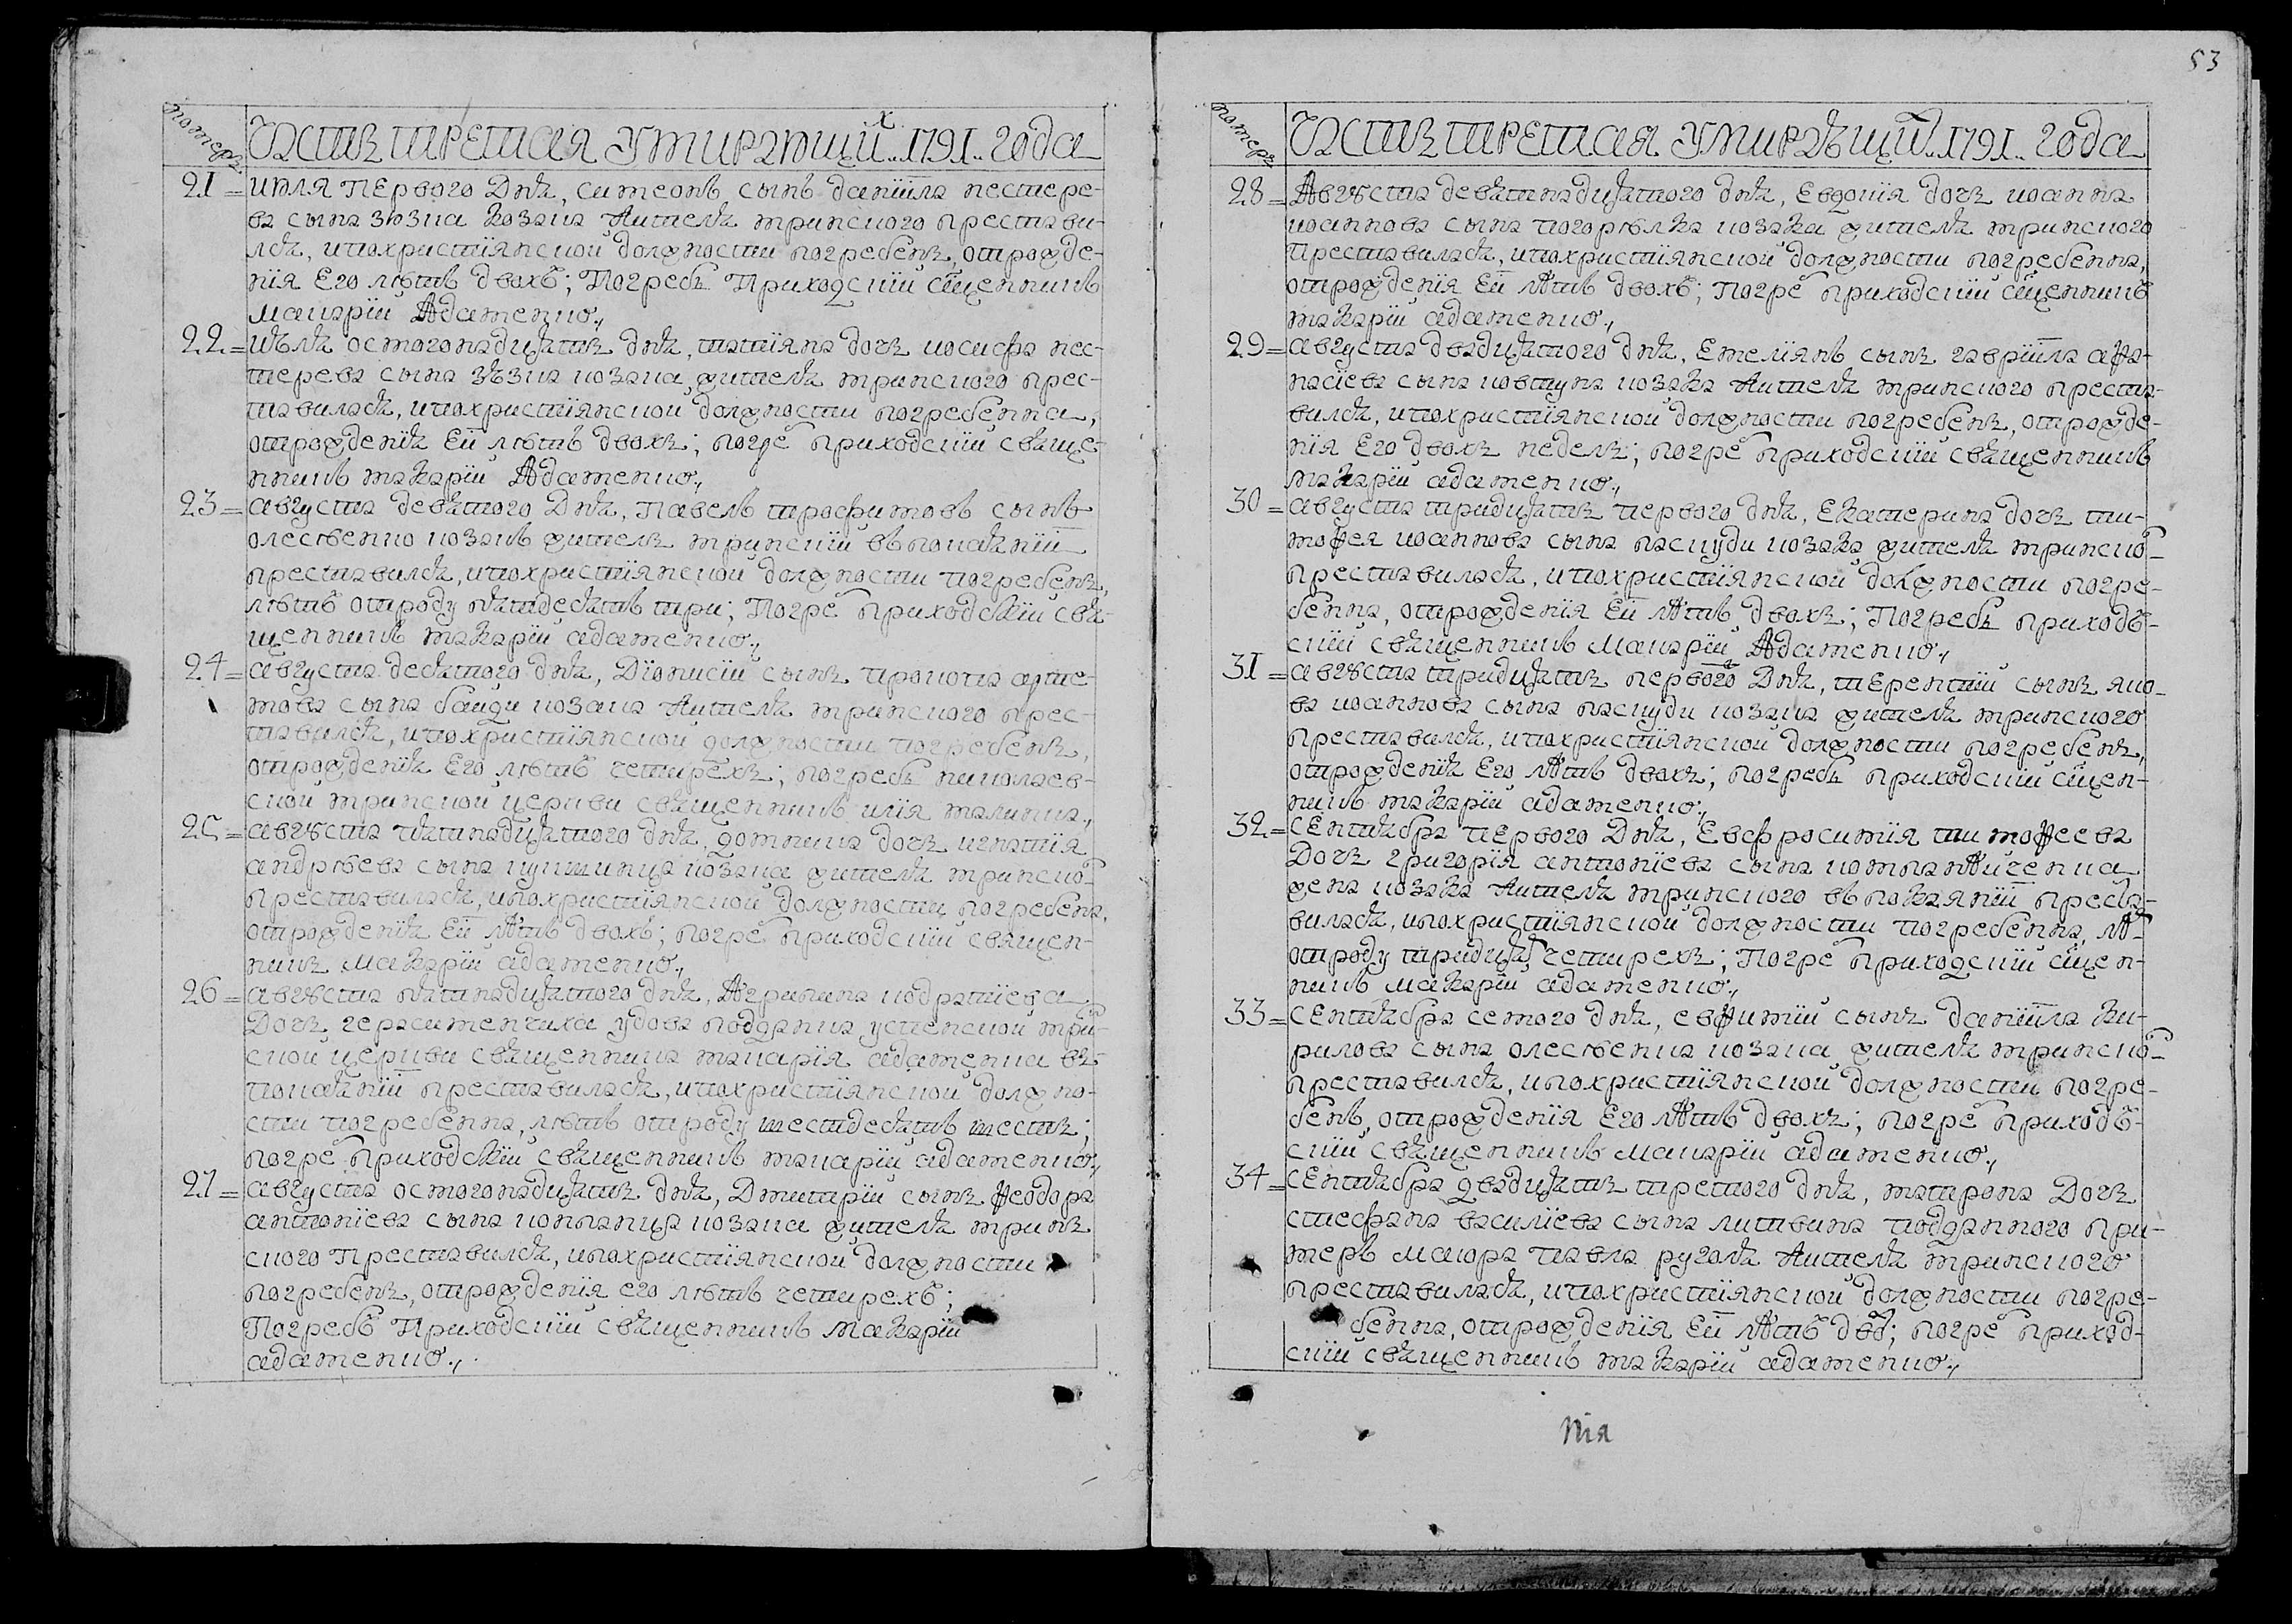 номеръ
Часть третая умирающихъ ..1791.. года
21 = июля первого дня, симеонъ сынъ даніила несторе-
ва сына зюзка козака жителя мринского престави-
лся, ипохристіянской должности погребенъ, отрожде-
нія Его лѣтъ двохъ; Погребъ Приходскій сщенникъ
Макарій Адаменко.,
22 = июля осмогонадцать дня, татіяна дочь иосифа нес-
терева сына зюзка козака, жителя мринского прес-
тавилася, ипохристіянской должности погребенна,
отрожденія Еи лѣтъ двохъ; погре приходскій свяще-
нникъ макарій Адаменко.,
23 = августа девятого Дня, Павелъ трофимовъ сынъ
олесѣенко козакъ житель мринскій въ покаяніи
преставился, ипохристіянской должности погребенъ,
лѣтъ отроду пятдесятъ три; Погре приходскій свя-
щенникъ макарій адаменко.,
24 = августа десятого дня, Діонисій сынъ прокопа арте-
мова сына байди козака жителя мринского прес-
тавился, ипохристіянской должности погребенъ,
отрожденія Его лѣтъ четирехъ; погребъ николаев-
ской мринской церкви священникъ илія малина.,
25 = августа пятинадцатого дня, домника дочь игнатія
андрѣева сына козака жителя мринско-
преставилася, ипохристіянской должности погребена,
отрожденія Еи лѣтъ двохъ; погре приходскій священ-
никъ Макарій адаменко.,
26 = августа пятинадцатого дня, Агрипина кодратіева
Дочь герасименчиха удова подданка успенской мрин-
ской церкви священника макарія адаменка въ
покаяніи преставилася, ипохристіянской должно-
сти погребенна, лѣтъ отроду шестдесятъ шесть;
погре приходскій священникъ макарій адаменко.,
27 = августа осмогонадцать дня, Дмитрій сынъ Феодора
антоніева сына козака жителя мринъ
ского Преставился, ипохристіянской должности
погребенъ, отрожденія его лѣтъ четирехъ;
Погребъ Приходскій священникъ Макарій
адаменко.,
53
номеръ
Часть третая умирающихъ ..1791.. года
28 = Августа девятинадцатого дня, Евдокія дочь иоанна
иоаннова сына погорѣлка козака жителя мринского
Преставилася, ипохристіянской должности погребенна,
отрожденія Еи лѣтъ двохъ; Погре приходскій сщенникъ
макарій адаменко.,
29 = августа двадцатого дня, Емеліянъ сынъ гавріила афа-
насіева сына ковтуна козака жителя мринского преста-
вился, ипохристіянской должности погребенъ, отрожде-
нія Его двохъ недель; погре приходскій священникъ
макарій адаменко.,
30 = августа тридцать первого дня, Екатерина дочь ти-
мофея иоаннова сына паскуди козака жителя мринско-
преставилася, ипохристіянской должности погре-
бенна, отрожденія Еи лѣтъ двохъ; Погребъ приход-
скій священникъ Макарій Адаменко.,
31 = августа тридцать первого Дня, терентій сынъ яко-
ва иоаннова сына паскуди козака жителя мринского
преставился, ипохристіянской должности погребенъ,
отрожденія Его лѣтъ двохъ; погребъ приходскій сщен-
никъ макарій адаменко.,
32 = сентября первого Дня, Евфросимія тимофеева
Дочь григорія антоніева сына
жена козака жителя мринского въ покаяніи преста-
вилася, ипохристіянской должности погребенна, лѣ-
отроду тридцат четирехъ; Погре приходскій сщен-
никъ Макарій адаменко.,
33 = сентября семого дня, евфимій сынъ даніила ки-
рилова сына олесѣенка козака жителя мринско-
преставился, ипохристіянской должности погре-
бенъ, отрожденія Его лѣтъ двохъ; погре приход-
скій священникъ Макарій адаменко.,
34 = сентября двадцать третого дня, матрона Дочь
стефана василіева сына литвина подданного при-
меръ маіора павла жителя мринского
преставилася, ипохристіянской должности погре-
бенна, отрожденія Еи лѣтъ дво; погре приход-
скій священникъ макарій адаменко.,
нія